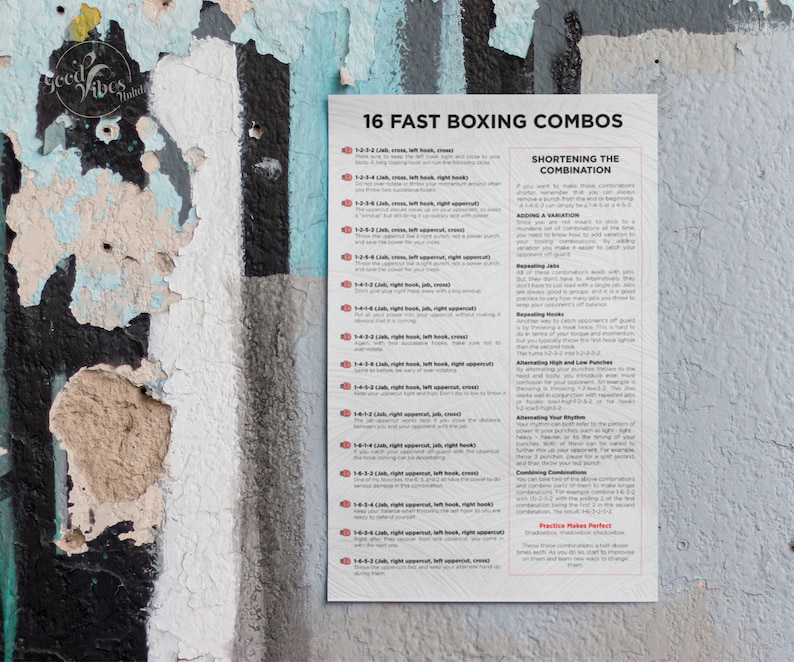 Good
Vibes
16 FAST BOXING COMBOS
1-2-3-2 (Jab, cross, left hook, cross)
Make sure to keep the left hook tight and close to your
body. A long looping hook will ruin the following cross.
1-2-3-4 (Jab, cross, left hook, right hook)
Do not over-rotate or throw your momentum around when
you throw two successive hooks.
1-2-3-6 (Jab, cross, left hook, right uppercut)
The uppercut should sneak up on your opponent, so avoid
a "windup" but still bring it up quickly and with power.
1-2-5-2 (Jab, cross, left uppercut, cross)
Throw the uppercut like a light punch, not a power punch
and save the power for your cross.
1-2-5-6 (Jab, cross, left uppercut, right uppercut)
Throw the uppercut like a light punch, not a power punch
and save the power for your cross.
1-4-1-2 (Jab, right hook, jab, cross)
Don't give your right hook away with a big windup.
1-4-1-6 (Jab, right hook, jab, right uppercut)
Put all your power into your uppercut without making it
obvious that it is coming.
1-4-3-2 (Jab, right hook, left hook, cross)
Again, with two successive hooks, make sure not to
over-rotate.
1-4-3-6 (Jab, right hook, left hook, right uppercut)
Same as before, be wary of over-rotating.
1-4-5-2 (Jab, right hook, left uppercut, cross)
Keep your uppercut tight and high. Don't dip so low to throw it.
1-6-1-2 (Jab, right uppercut, jab, cross)
The jab-uppercut works best if you close the distance
between you and your opponent with the jab.
1-6-1-4 (Jab, right uppercut, jab, right hook)
If you catch your opponent off-guard with the uppercut,
the hook coming can be devastating.
1-6-3-2 (Jab, right uppercut, left hook, cross)
One of my favorites, the 6, 3, and 2 all have the power to do
serious damage in this combination.
1-6-3-4 (Jab, right uppercut, left hook, right hook)
Keep your balance when throwing the last hook so you are
ready to defend yourself.
1-6-3-6 (Jab, right uppercut, left hook, right uppercut)
Right after they recover from one uppercut, you come in
with the next one.
1-6-5-2 (Jab, right uppercut, left uppercut, cross)
Throw the uppercuts fast and keep your alternate hand up
during them.
SHORTENING THE
COMBINATION
If you want to make these combinations
shorter, remember that you can always
remove a punch from the end or beginning.
A 1-4-5-2 can simply be a 1-4-5 or a 4-5-2.
ADDING A VARIATION
Since you are not mixed to stick to a
mundane set of combinations all the time,
you need to know how to add variation to
your boxing combinations. By adding
variation you make it easier to catch your
opponent off-guard.
Repeating Jabs
All of these combinations leads with jabs.
But they don't have to. Alternatively, they
don't have to just lead with a single jab. Jabs
are always good is groups, and it is a good
practice to vary how many jabs you throw to
keep your opponent's off balance.
Repeating Hooks
Another way to catch opponent's off guard
is by throwing a hook twice. This is hard to
do in terms of your torque and momentum,
but you typically throw the first hook lighter
than the second hook.
This turns 1-2-3-2 into 1-2-3-3-2.
Alternating High and Low Punches
By alternating your punches thrown to the
head and body, you introduce even more
confusion for your opponent. An example is
throwing is throwing 1-2-low3-2. This also
works well in conjunction with repeated jabs
or hooks:
1-2-low3-high3-2
Alternating Your Rhythm
Your rhythm can both refer to the pattern of
power in your punches, such as light - light -
heavy - heavier, or to the timing of your
punches. Both of these can be varied to
further mix up your opponent. For example,
throw 3 punches, pause for a split second,
and then throw your last punch.
Combining Combinations
You can take two of the above combinations
and combine parts of them to make longer
combinations. For example combine 1-6-3-2
with (1)-2-5-2 with the ending 2 of the first
combination being the first 2 in the second
combination. The result: 1-6-3-2-5-2.
Practice Makes Perfect
Shadowbox, shadowbox, shadowbox.
Throw these combinations a half-dozen
times each. As you do so, start to improvise
on them and learn new ways to change
them.